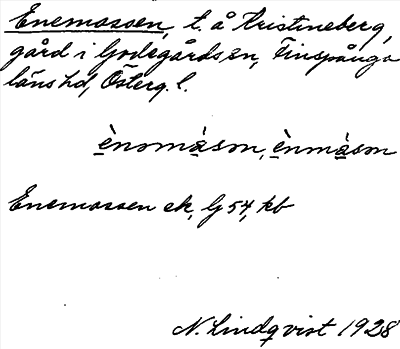 Enemossen, t. å Kristineberg,
gård i Godegårds sn, Finspånga
läns hd, Österg. l.
ènomå̀sən, ènmå̀sən
Enemossen ek, G 54, kb
N. Lindqvist 1928